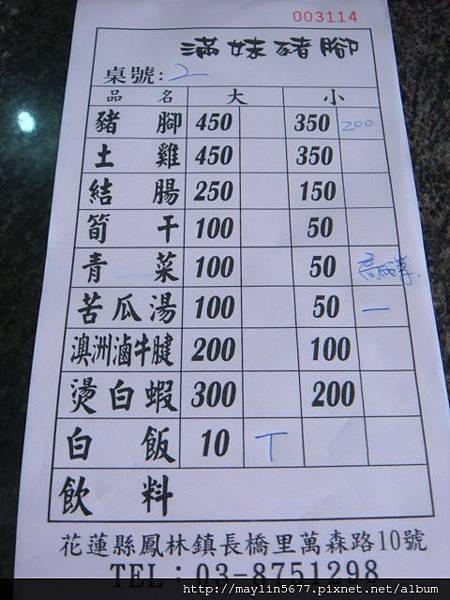 003114
滿妹豬腳
桌號: 2
品 名 大 小
豬 腳 450 350 200
土 雞 450 350
結 腸 250 150
筍 干 100 50
青 菜 100 50
苦瓜湯 100 50 一
澳洲滷牛腱 200 100
燙白蝦 300 200
白 飯 10 T
飲 料
花蓮縣鳳林鎮長橋里萬森路10號
TEL：03-8751298
http://maylin5677.pixnet.net/album